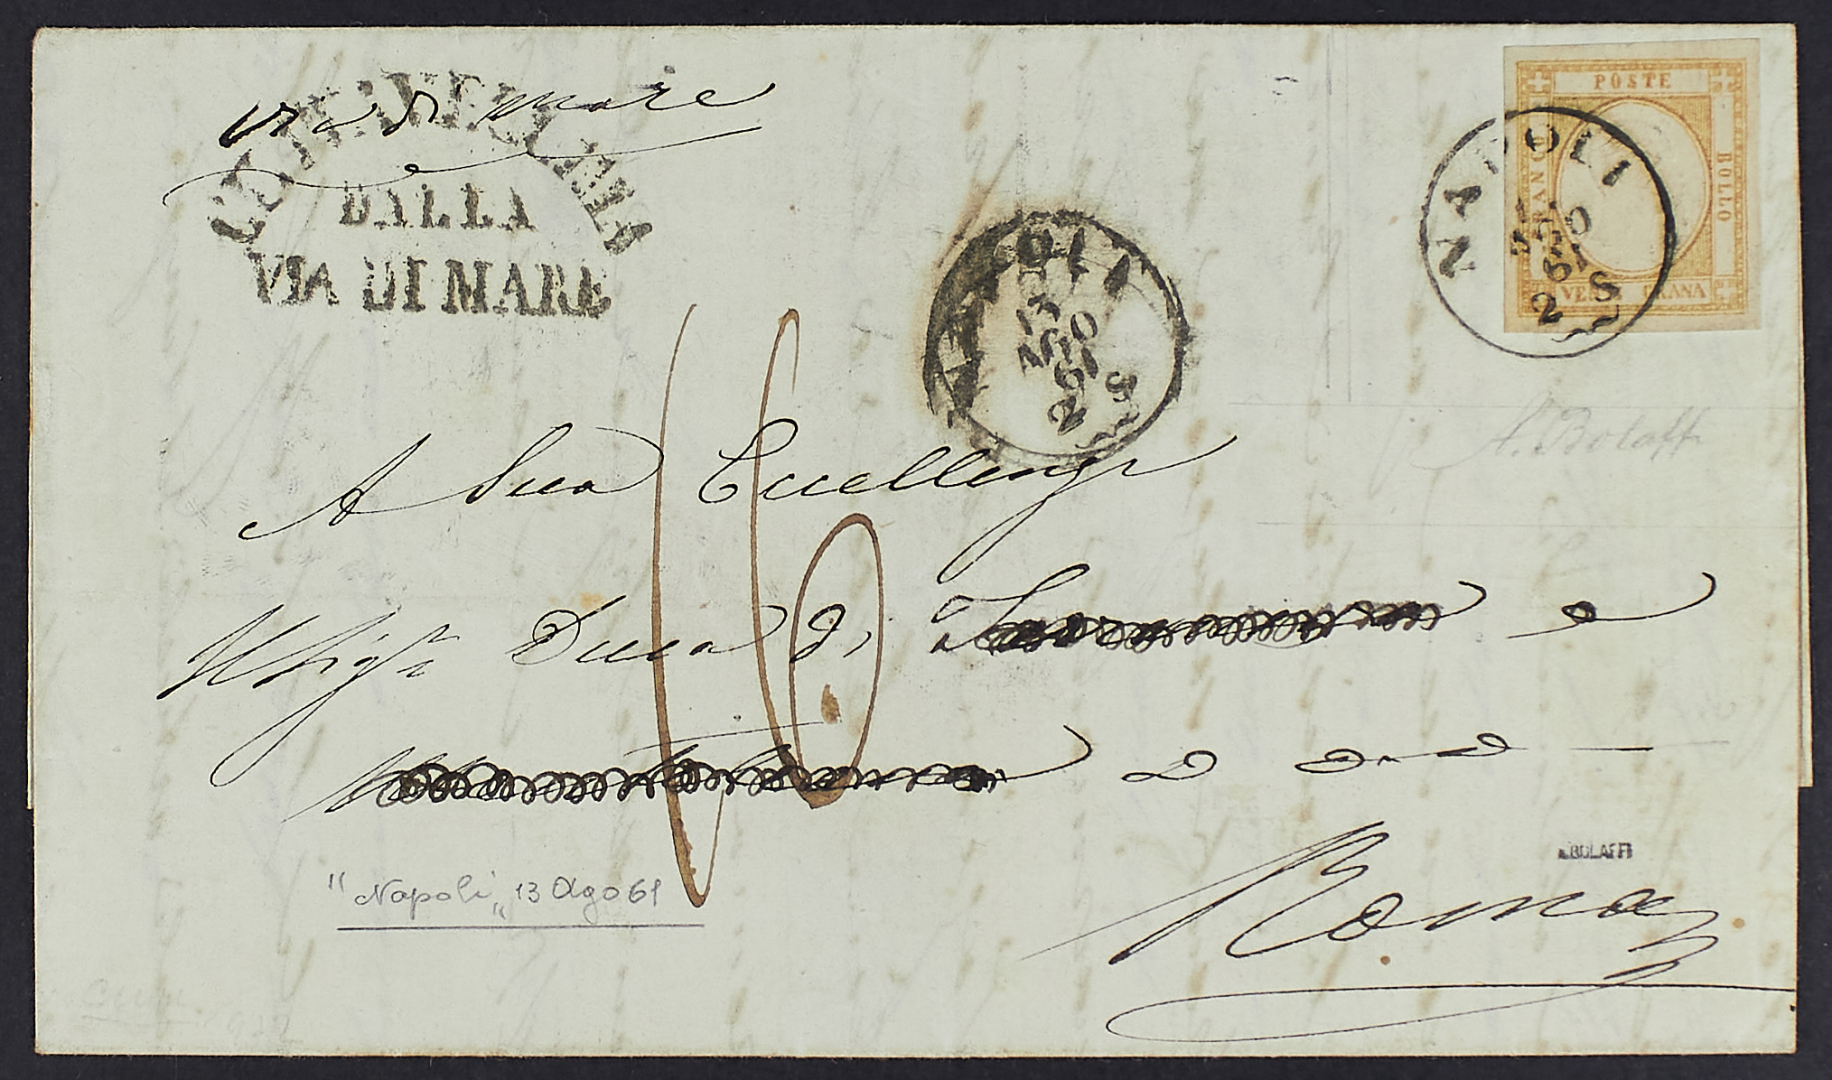 via di mare
CIVITAVECCHIA
DALLA
VIA DI MARE
POSTE
FRANCO
BOLLO
VENTI GRANA
NAPOLI
13
AGO
61
2 S
NAPOLI
13
AGO
61
2 S
A. Bolaffi
16
A Sua Eccellenza
Duca di
"Napoli" 13 Ago 61
A.BOLAFFI
Roma